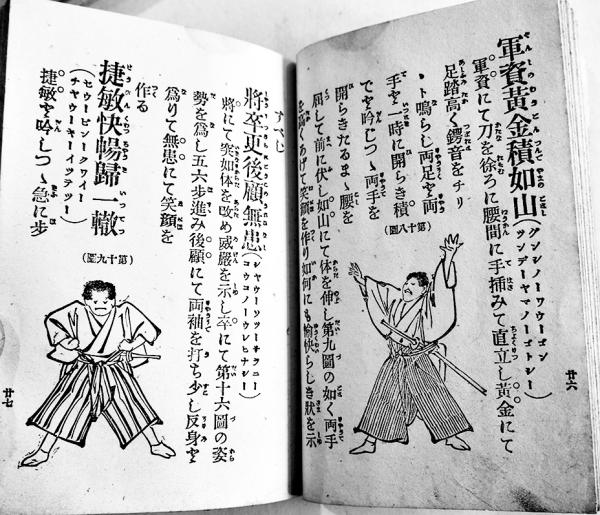 軍資黃金積如山(グンシノワウーゴン
ツンデーヤマノゴトシー)
軍資にて刀を徐ろに腰間に手挿みて直立し黃金にて
足踏高く鍔音をチリ
ヽト鳴らし両足を両
手を一時に開らき積
でを吟じつゝ両手を
開らきたるまゝ腰を
屈して前に伏し如山にて体を伸し第九圖の如く両手
を高くあげて笑顔を作り如何にも愉快らしき狀を示
すべし
(第十八圖)
廿六
將卒更後顧無患(シャウーソツーサラニー
コウコノーウレヒナシー)
將にて笑如体を改め威嚴を示し卒にて第十六圖の姿
勢を爲し五六步進み後顧にて両袖を打ち少し反身を
爲りて無患にて笑顔を
作る
捷敏快暢歸一轍
(セウービンークワイー
チャウーキーイツテツー)
捷敏を吟しつゝ急に步
(第十九圖)
廿七